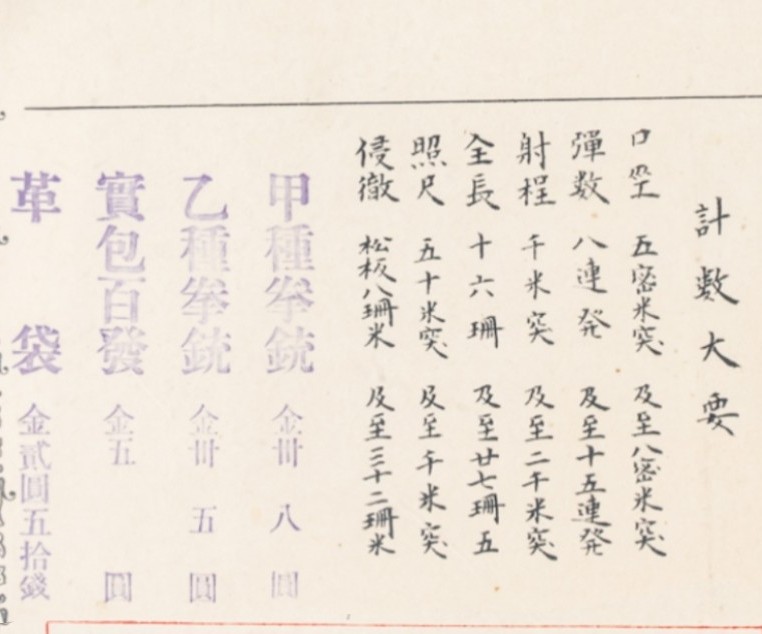 計數大要
口巠 五密米突 及至八密米突
彈数 八連発 及至十五連発
射程 千米突 及至二千米突
全長 十六珊 及至廿七珊五
照尺 五十米突 及至千米突
侵徹 松板八珊米 及至三十二珊米
甲種拳銃 金卅八圓
乙種拳銃 金卅五圓
實包百發 金五圓
革袋 金貳圓五拾錢